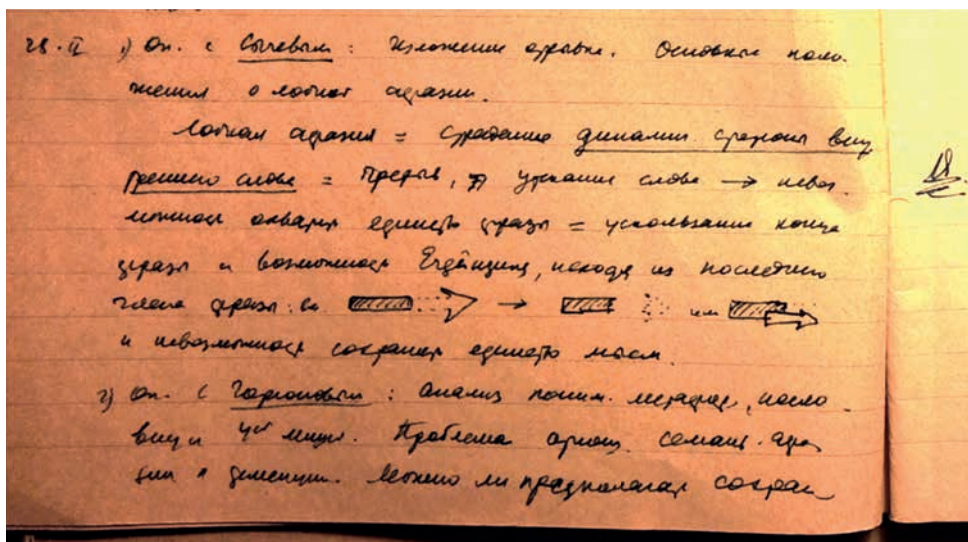 28.II 1) Оп. с Сычевым: Изложение отрывка. Основные поло-
жения о лобной афазии.
Лобная афазия = страдание динамич. стороны внут
реннего слова = Прерыв, угасание слова → невоз-
можность охватить единство фразы = ускользание конца
фразы и возможность Ergänzung, исходя из последнего
члена фразы: → или
и невозможность сохранить единство мысли.
2) Оп. с : Анализ поним. метафор, посло-
виц и Проблема семант. афа
зии и деменции. Можно ли предполагать сохран